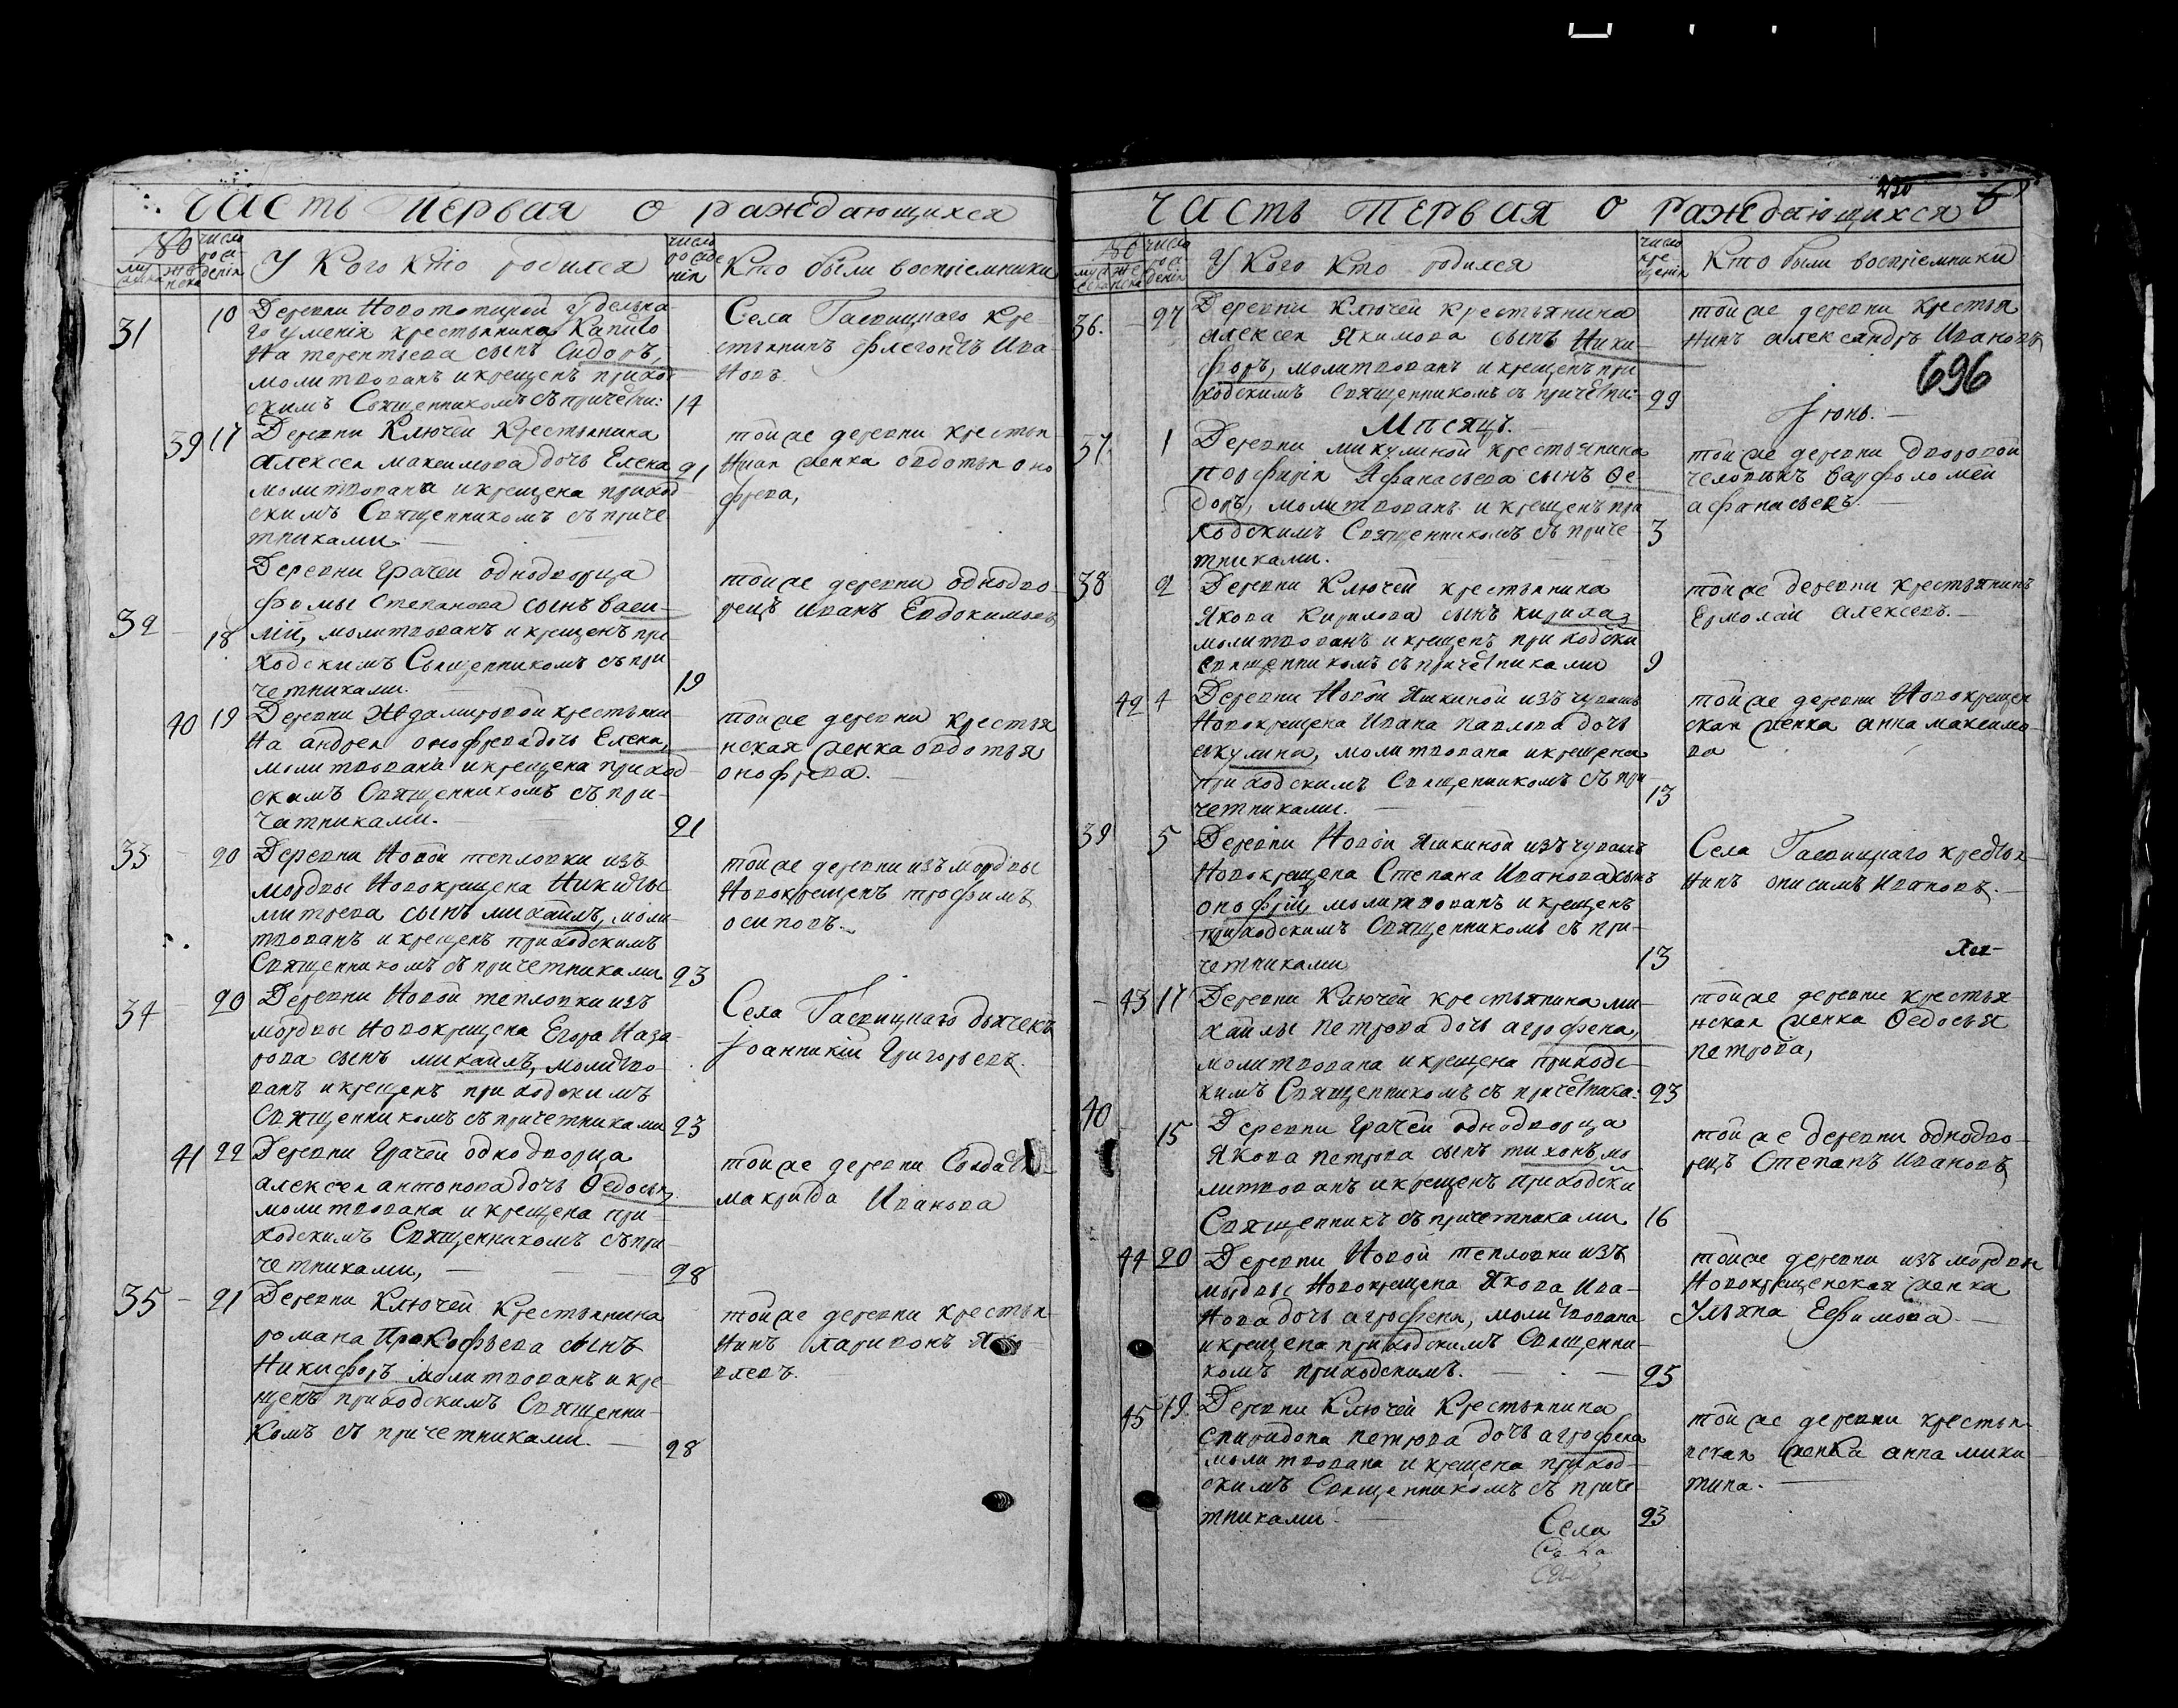 Часть первая о раждающихся
№
число рожденія
У кого кто родился
Кто были воспріемники
31
10
Деревни Новототцкой удельна-
го уменія крестьянина
на терентьева сынъ Сидоръ,
молитвованъ и крещенъ приход
скимъ Священникомъ съ причетни:
14
Села Гасвицкаго кре-
стьянинъ Флегонтъ Ива-
новъ.
39 17
Деревни Ключей Крестьянина
Алексея Максимова дочь Елена
молитвована и крещена приход-
скимъ Священникомъ съ приче
тниками.
21
тойже деревни крестьян
женка овдотья оно
фрева,
32
18
Деревни Грачей однодворца
Фомы Степанова сынъ Васи-
лій, молитвованъ и крещенъ при
ходскимъ Священникомъ съ при-
четниками.
19
тойже деревни однодво-
рецъ Иванъ Евдокимовъ
40 19
Деревни крестьяни-
на андрея онофрева дочь Елена,
молитвована и крещена приход-
скимъ Священникомъ съ при-
четниками.
21
тойже деревни крестья
нская женка овдотья
онофрева.
33
20
Деревни Новой тепловки изъ
мордвы Новокрещена Никиты
митрева сынъ михаилъ, моли-
твованъ и крещенъ приходскимъ
Священникомъ съ причетниками
23
тойже деревни изъ мордвы
Новокрещенъ трофимъ
осиповъ.
34
20
Деревни Новой тепловки изъ
мордвы Новокрещена Егора Наза-
рова сынъ михаилъ, молитво-
ванъ и крещенъ приходскимъ
Священникомъ съ причетниками
23
Села Гасвицкаго дьячекъ
Іоанникій Григорьевъ.
41 22
Деревни Грачей однодворца
алексея антонова дочь Ѳедосья,
молитвована и крещена при-
ходскимъ Священникомъ съ при-
четниками,
28
тойже деревни
макрида Иванова
35
21
Деревни Ключей Крестьянина
романа Прокофьева сынъ
Никифоръ молитвованъ и кре-
щенъ приходскимъ Священни-
комъ съ причетниками.
28
тойже деревни крестья-
нинъ ларивонъ
влевъ.
230
Часть первая о раждающихся
№
число рожденія
У кого кто родился
число крещенія
Кто были воспріемники
36.
27
Деревни Ключей крестьянина
алексея Якимова сынъ Ники-
форъ, молитвованъ и крещенъ при
ходскимъ Священникомъ съ причетни:
29
тойже деревни крестья
нинъ александръ Ивановъ
696
Мѣсяцъ. Іюнь.
37.
1
Деревни микулиной крестьянина
порфирія Афанасьева сынъ Ѳе-
доръ, молитвованъ и крещенъ при
ходскимъ Священникомъ съ приче-
тниками.
3
тойже деревни дворовой
человѣкъ варфоломей
афанасьевъ.
38
2
Деревни Ключей крестьянина
Якова Кирилова сынъ кирила,
молитвованъ и крещенъ приходски
священникомъ съ причетниками
9
тойже деревни крестьянинъ
Ермолай алексеевъ.
42 4
Деревни Новой Яшкиной изъ чувашъ
Новокрещена Ивана павлова дочь
окулина, молитвована и крещена
приходскимъ Священникомъ съ при-
четниками.
13
тойже деревни Новокрещен
ская женка анна максимо-
ва
39
5
Деревни Новой Яшкиной изъ чувашъ
Новокрещена Степана Иванова сынъ
онофрій, молитвованъ и крещенъ
приходскимъ Священникомъ съ при-
четниками
13
Села Гасвицкаго крестья-
нинъ онисимъ Ивановъ.
43 17
Деревни Ключей крестьянина ми-
хайлы петрова дочь агрофена,
молитвована и крещена приходс-
кимъ Священникомъ съ причетника:
23
тойже деревни крестья
нская женка Ѳедосья
петрова,
40
15
Деревни Грачей однодворца
Якова петрова сынъ тихонъ, мо
литвованъ и крещенъ приходски
Священникъ съ причетниками
16
тойже деревни однодво-
рецъ Степанъ Ивановъ
44 20
Деревни Новой тепловки изъ
мордвы Новокрещена Якова Ива-
нова дочь агрофена, молитвована
и крещена приходскимъ Священни-
комъ приходскимъ.
25
тойже деревни изъ мордвы
Новокрещенская женка
Ульяна Ефимова
45 19.
Деревни Ключей Крестьянина
спиридона петрова дочь агрофена
молитвована и крещена приход-
скимъ Священникомъ съ приче-
тниками.
23
тойже деревни крестья-
нская женка анна мики
тина.
Села